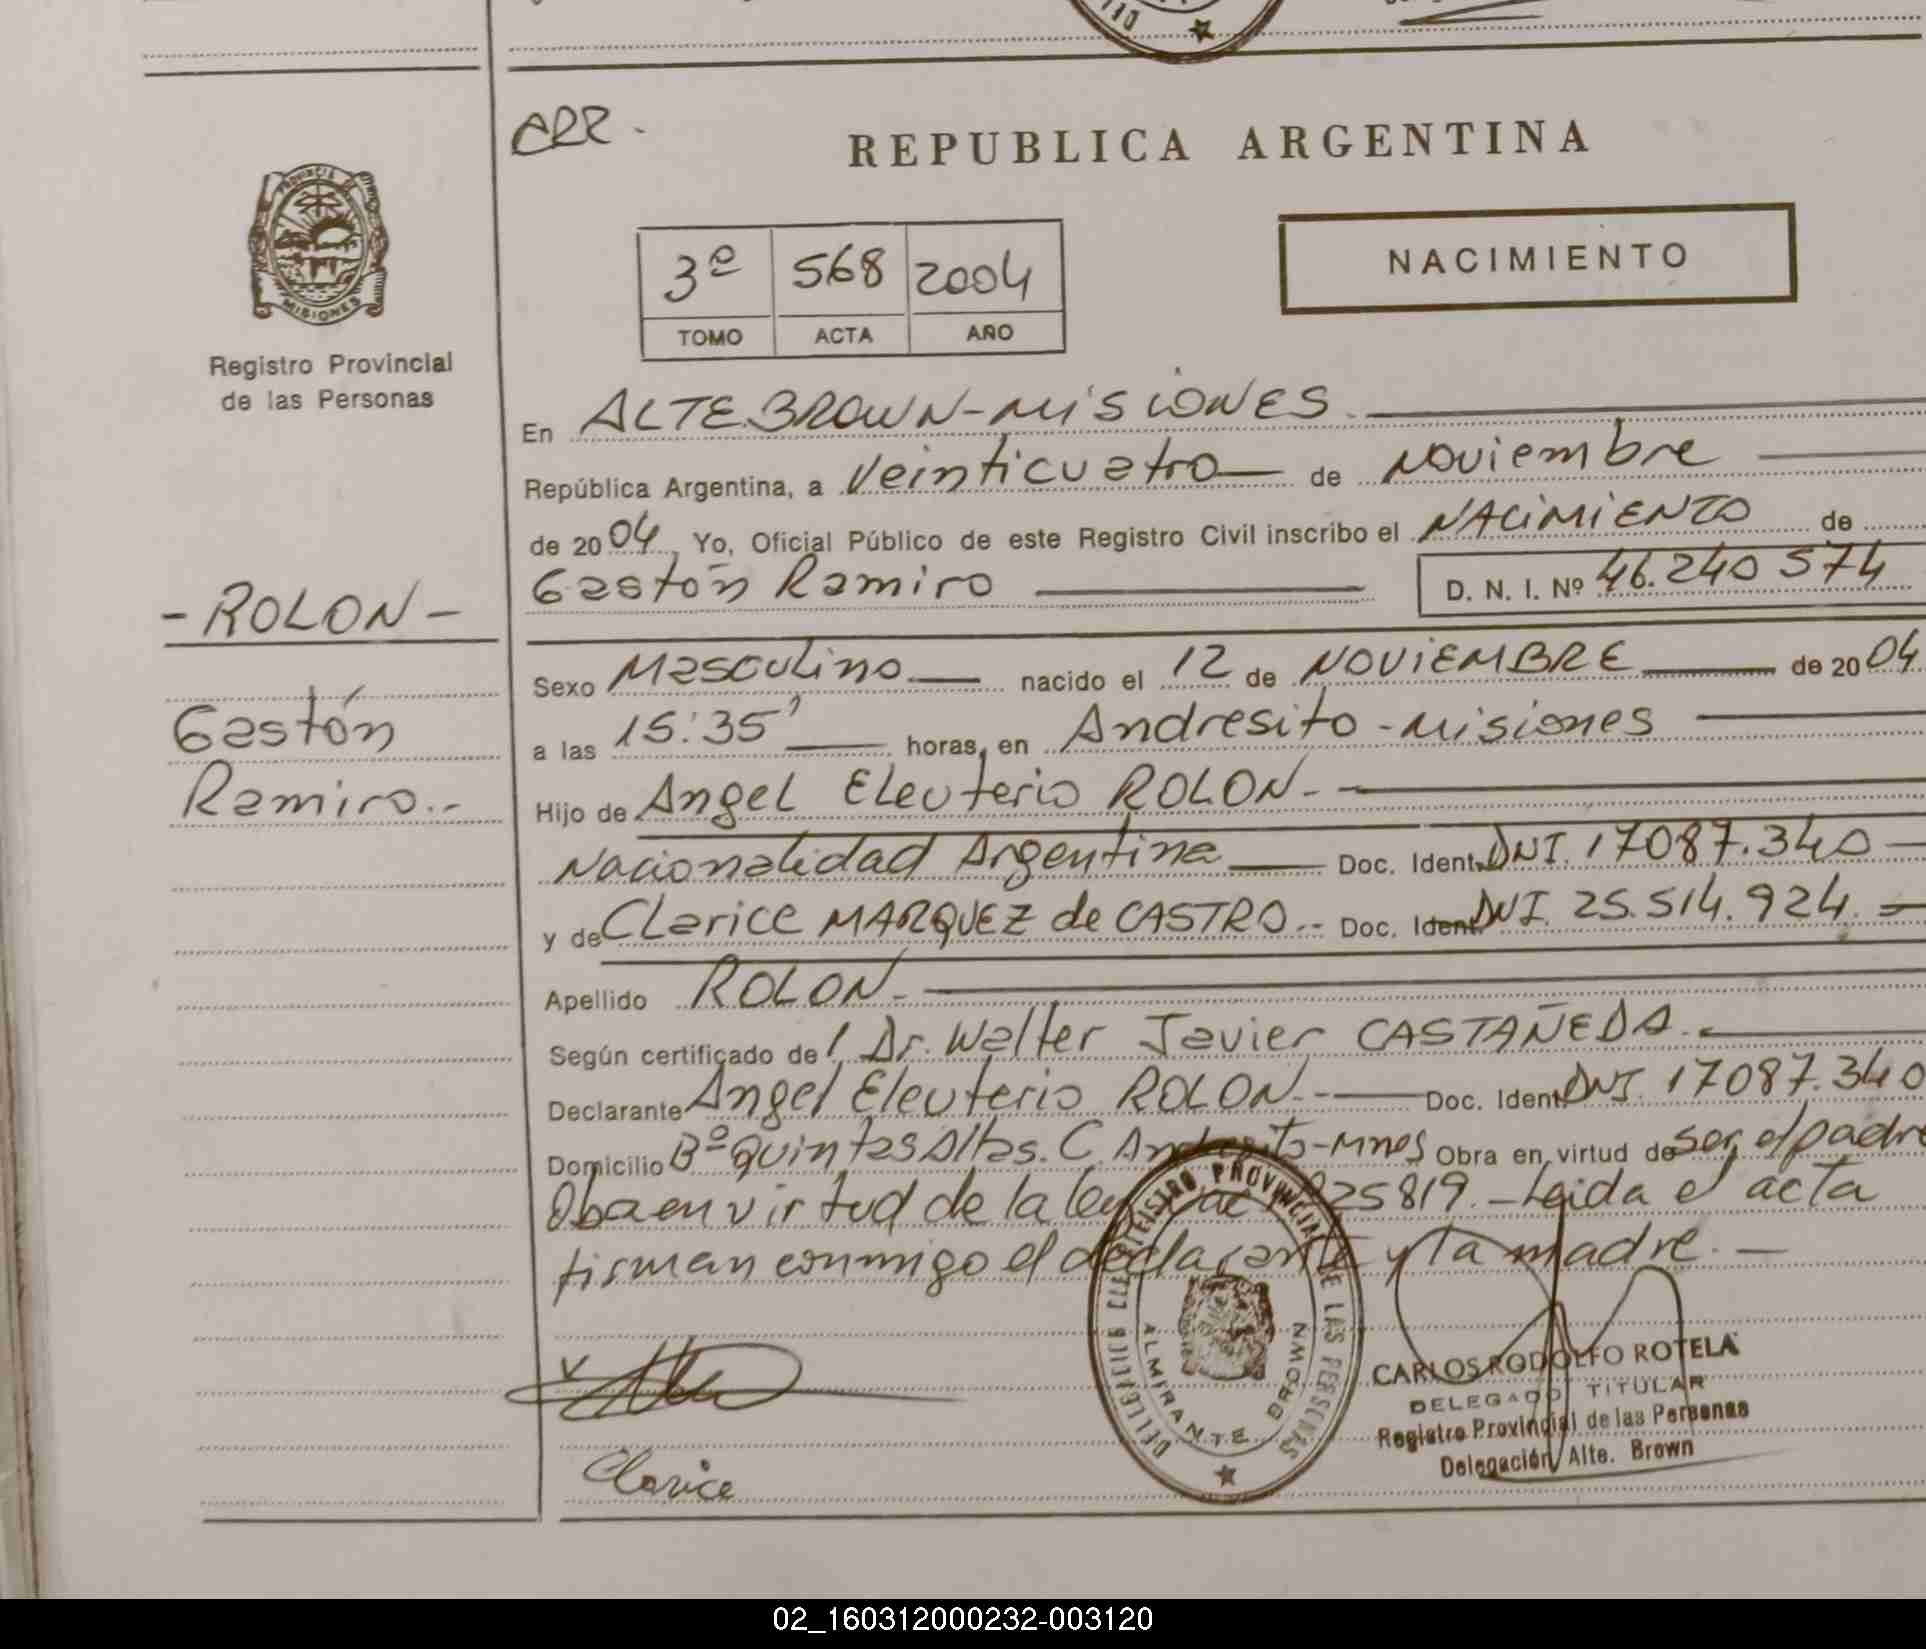 CRR.
REPUBLICA ARGENTINA
PROVINCIA DE
MISIONES
Registro Provincial
de las Personas
3º 568 2004
TOMO ACTA AÑO
NACIMIENTO
En ALTE.BROWN-MISIONES.
República Argentina, a Veinticuatro de Noviembre
de 2004, Yo, Oficial Público de este Registro Civil inscribo el NACIMIENTO de
Gastón Ramiro D. N. I. Nº 46.240 574
-ROLON-
Gastón
Ramiro.-
Sexo Masculino nacido el 12 de NOVIEMBRE de 2004
a las 15:35' horas, en Andresito-Misiones
Hijo de Angel Eleuterio ROLON.-
Nacionalidad Argentina Doc. Ident. DNI. 17087.340
y de Clarice MARQUEZ de CASTRO.- Doc. Ident. DNI. 25.514.924.
Apellido ROLON.
Según certificado de l Dr. Walter Javier CASTAÑEDA.
Declarante Angel Eleuterio ROLON.- Doc. Ident. DNI. 17087.340
Domicilio Bº Quintas Altas. C. Andresito-Mnes Obra en virtud de ser el padre
Oba en virtud de la ley 25819.- Leida el acta
firman conmigo el declarante y la madre.
REGISTRO PROVINCIAL DE LAS PERSONAS
ALMIRANTE BROWN
CARLOS RODOLFO ROTELA
DELEGADO TITULAR
Registro Provincial de las Personas
Delegación Alte. Brown
Clarice
02_160312000232-003120